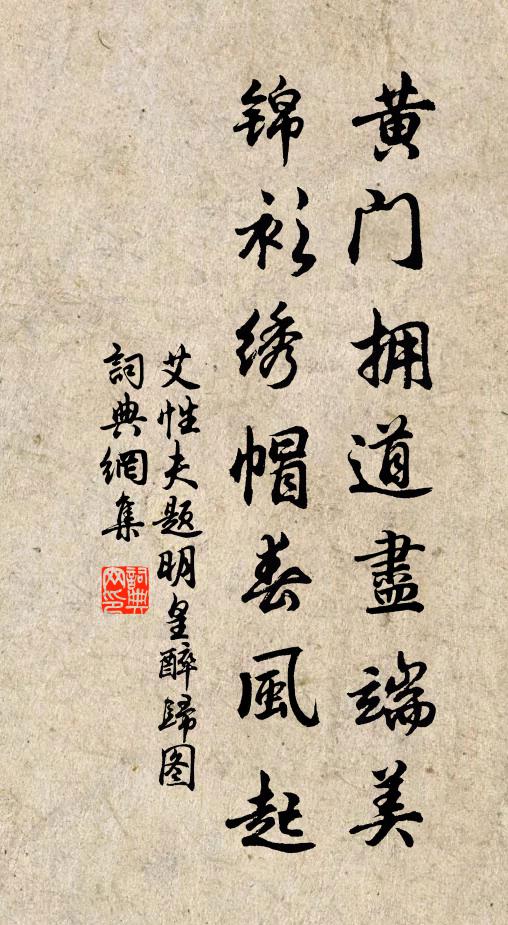 黄门拥道盡端美
锦衫绣帽春風起
艾性夫题明皇醉歸图
詞典網集
詞典网印